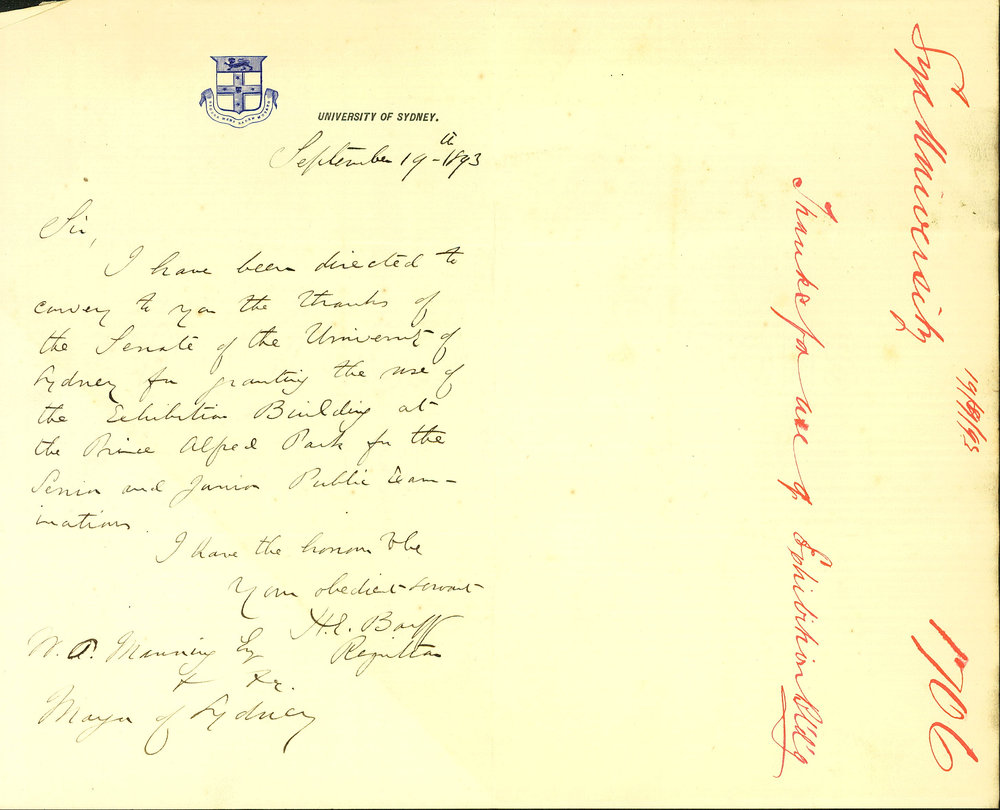 UNIVERSITY OF SYDNEY.
September 19th 1893
Sir,
I have been directed to
convey to you the thanks of
the Senate of the University of
Sydney for granting the use of
the Exhibition Building at
the Prince Alfred Park for the
Senior and Junior Public Exam-
inations.
I have the honour to be
Your obedient servant
H.E. Barff
Registrar
W. P. Manning Esq
&c.
Mayor of Sydney
Syd University
19/9/93
1706
Thanks for use of Exhibition Bld'g